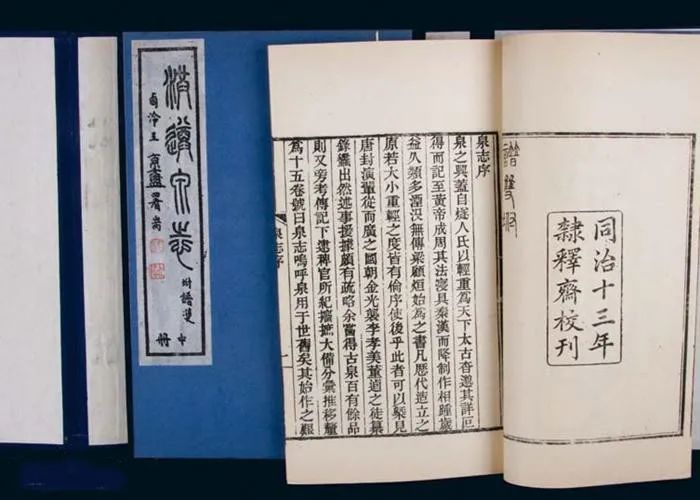 同治十三年
隸釋齋校刊
泉志序
泉之興蓋自燧人氏以輕重為天下太古杳邈其詳叵
得而記至黃帝成周其法寖具秦漢而降制作相踵歲
益久頗多湮沒無傳梁顧烜始為之書凡歷代造立之
原若大小重輕之度皆有倫序使後乎此者可以槩見
唐封演輩從而廣之國朝金光襲李孝美董逌之徒纂
錄蠭出然述事援據頗有疏略余嘗得古泉百有餘品
則又旁考傳記下逮稗官所紀摭大備分彙推移釐
為十五卷號曰泉志嗚呼泉用于世舊矣其始作之艱
泉志序
一
洪遵泉志
附譜雙
中冊
署耑